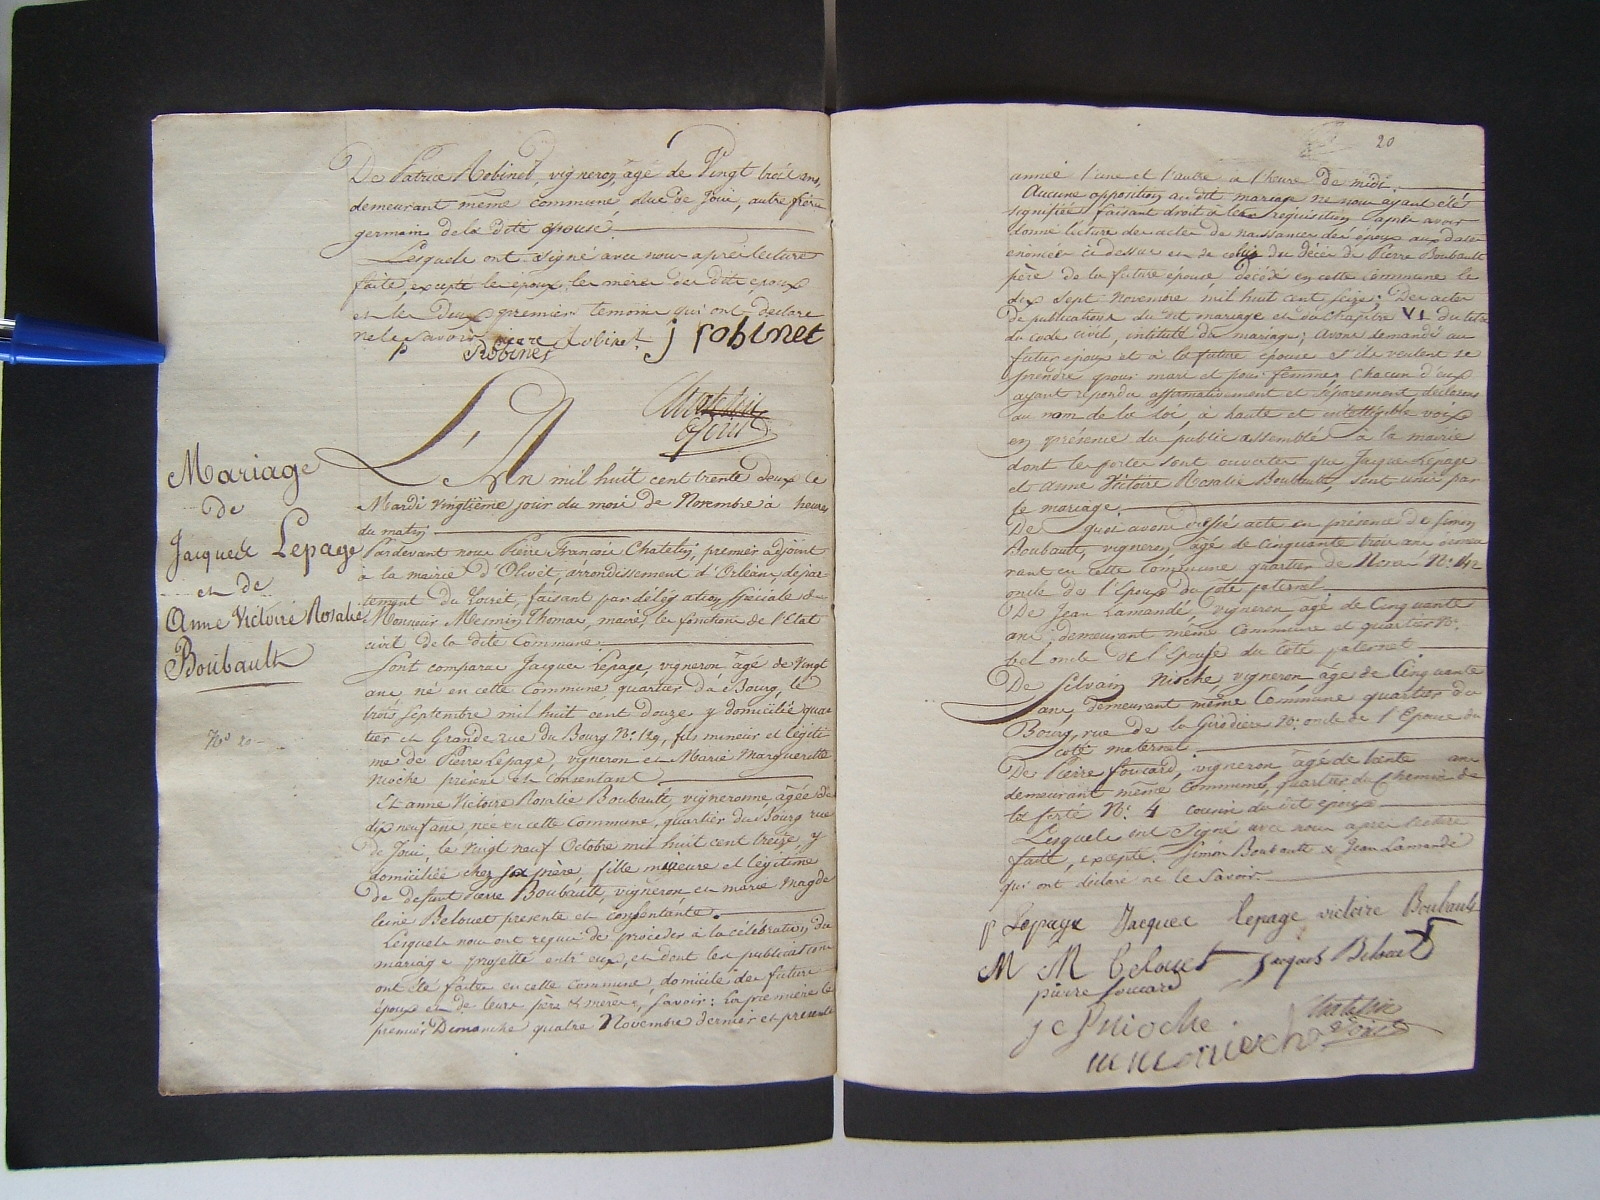 De Patrice Robinet, vigneron, âgé de Vingt trois ans,
demeurant même commune, Rue de Joui, autre frère
germain de la dite épouse
Lesquels ont signé avec nous après lecture
faite, excepté les époux, les mères des dits époux
et les Deux premiers temoins qui ont declaré
ne le savoir
pierre Robinet j robinet
p Robinet
Chatelin
Adjoint
Mariage
de
Jacques Lepage
et de
Anne Victoire Rosalie
Boubault
No 20
L'An mil huit cent trente deux le
Mardi vingtième jour du mois de Novembre à heures
du matin
Pardevant nous Pierre François Chatelin, premier adjoint
à la mairie d'Olivet, arrondissement d'Orléans, dépar-
tement du Loiret, faisant par délégation spéciale de
Monsieur Mesmin Thomas, maire, les fonctions de l'Etat
civil de la dite Commune.
Sont comparus Jacques Lepage, vigneron, âgé de Vingt
ans né en cette Commune, quartier du Bourg, le
trois Septembre mil huit cent douze, y domicilié quar
tier et Grande rue du Bourg No. 129, fils mineur et légiti
me de Pierre Lepage, vigneron et Marie Marguerite
Nioche présens et consentant
Et Anne Victoire Rosalie Boubault, vigneronne, âgée de
dix neuf ans, née en cette Commune, quartier du Bourg rue
de Joui, le Vingt neuf Octobre mil huit cent treize, y
domiciliée chez sa mère, fille mineure et légitime
de defunt Pierre Boubault, vigneron et marie Magde
leine Belouet presente et consentante.
Lesquels nous ont requis de procéder à la célébration du
mariage projetté entr'eux, et dont les publications
ont été faites en cette commune, domicile des futurs
époux et de leurs père & mères, Savoir: La première le
premier Dimanche quatre Novembre dernier et présente
20
année l'une et l'autre à l'heure de midi.
Aucune opposition au dit mariage ne nous ayant été
signifiée faisant droit à leur requisition, après avoir
donné lecture des actes de naissances des époux aux dates
enoncées ci dessus et de celui du décès de Pierre Boubault
père de la future épouse, décédé en cette commune le
dix Sept Novembre mil huit cent seize; Des actes
de publications du dit mariage et du Chapitre VI du titre
du code civil, intitulé du mariage; avons demandé au
futur époux et à la future épouse s'ils veulent se
prendre pour mari et pour femme; Chacun d'eux
ayant répondu affirmativement et séparement, déclarons
au nom de la Loi, à haute et intelligible voix
en présence du public assemblé à la mairie
dont les portes sont ouvertes que Jacques Lepage
et Anne Victoire Rosalie Boubault, sont unis par
le mariage.
De quoi avons dressé acte en présence de Simon
Boubault, vigneron, âgé de cinquante trois ans demeu
rant en cette Commune quartier de No. 142
oncle de l'Epouse du coté paternel
De Jean Lamandé, vigneron, âgé de Cinquante
ans demeurant même Commune et quartier No.
bel oncle de l'épouse du coté paternel
De Silvain Nioche, vigneron, âgé de Cinquante
ans, demeurant même Commune quartier du
Bourg, rue de la Girodière No. oncle de l'Epoux du
coté maternel
De Pierre foucard, vigneron âgé de trente ans
demeurant même Commune, quartier du Chemin de
la ferté No. 4 cousin du dit époux
Lesquels ont Signé avec nous après lecture
faite, excepté Simon Boubault & Jean Lamandé
qui ont déclaré ne le Savoir.
p Lepage Jacques lepage victoire Boubault
M M belouet Jacques Belouet
pierre foucard
Nioche Chatelin
Adjoint